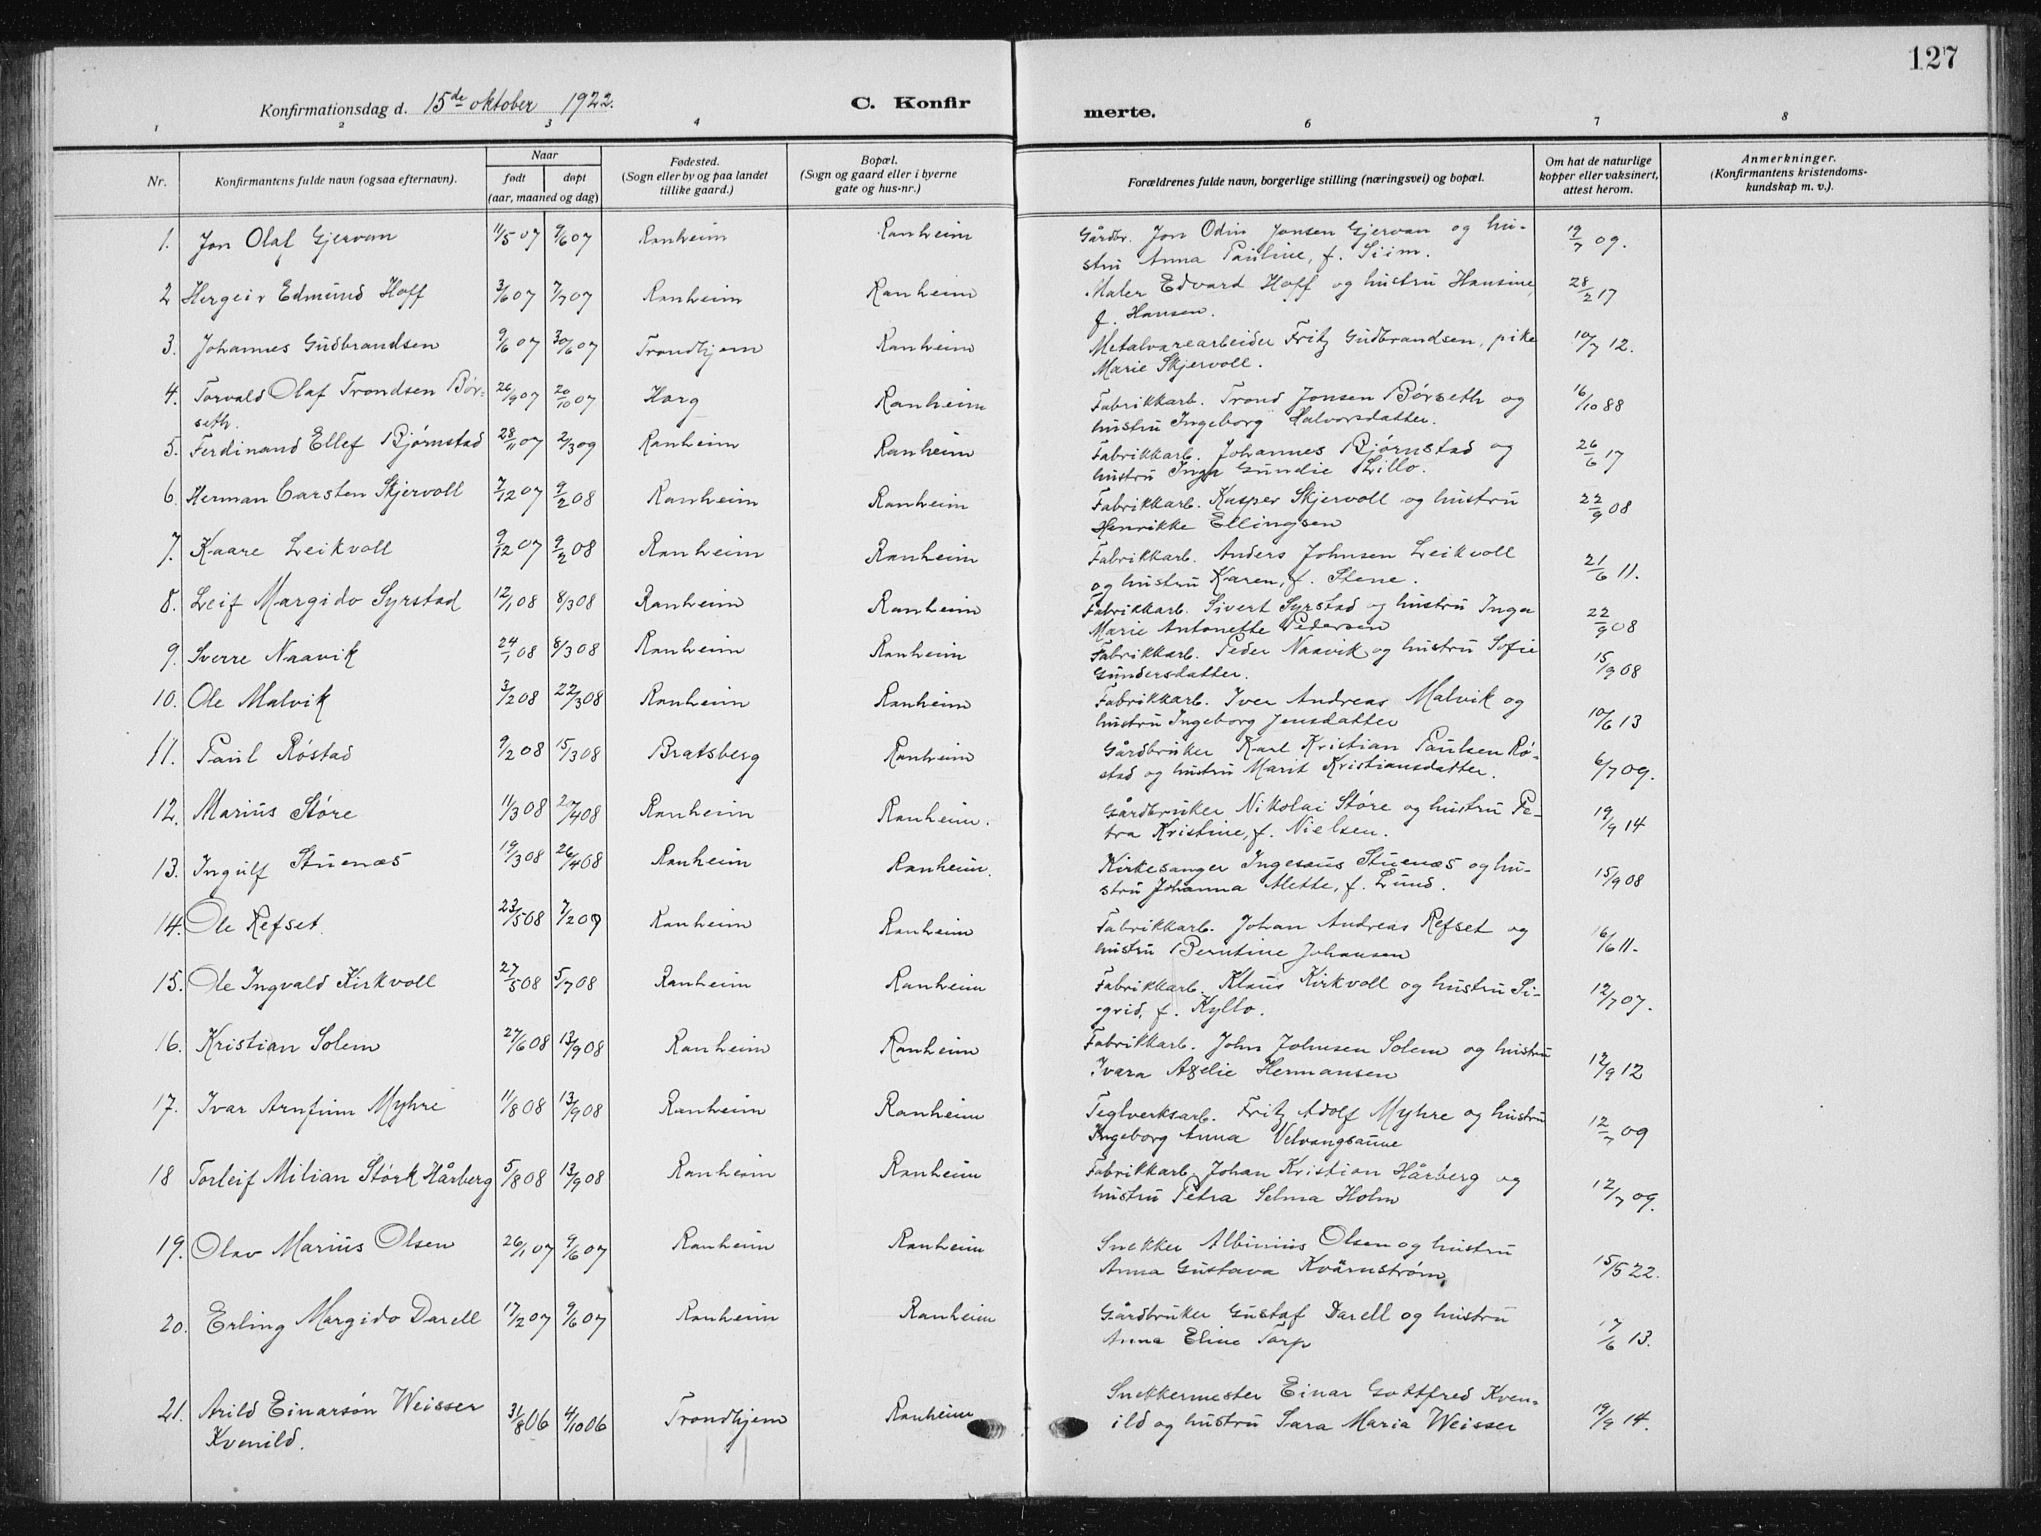 127
Konfirmationsdag d. 15de oktober 1922.
C. Konfir
merte.
1 2 3 4 6 7 8
Nr.
Konfirmantens fulde navn (ogsaa efternavn).
Naar
født
døpt
(aar, maaned og dag)
Fødested.
(Sogn eller by og paa landet
tillike gaard.)
Bopæl.
(Sogn og gaard eller i byerne
gate og hus-nr.)
Forældrenes fulde navn, borgerlige stilling (næringsvei) og bopæl.
Om hat de naturlige
kopper eller vaksinert,
attest herom.
Anmerkninger.
(Konfirmantens kristendoms-
kundskap m. v.).
1. Jon Olaf Gjervan 11/5 07 9/6 07 Ranheim Ranheim Gårdbr. Jon Odin Jonsen Gjervan og hu- 19/7 09.
stru Anna Pauline, f. Siim.
2 Hergeir Edmund Hoff 3/6 07 7/7 07 Ranheim Ranheim Maler Edvard Hoff og hustru Hansine, 28/2 17
f. Hansen.
3. Johannes Gudbrandsen 9/6 07 30/6 07 Trondhjem Ranheim Metalvarearbeider Fritz Gudbrandsen, pike 10/7 12.
Marie Skjervoll.
4. Torvald Olaf Trondsen Bør- 26/9 07 20/10 07 Horg Ranheim Fabrikkarb. Trond Jonsen Børseth og 16/10 88
seth. hustru Ingeborg Halvorsdatter.
5. Ferdinand Ellef Bjørnstad 28/11 07 2/3 09 Ranheim Ranheim Fabrikkarb. Johannes Bjørnstad og 26/6 17
hustru Inga Gundie Lillo.
6. Herman Carsten Skjervoll 7/12 07 9/2 08 Ranheim Ranheim Fabrikkarb. Kasper Skjervoll og hustru 22/9 08
Henrikke Ellingsen
7. Kaare Leikvoll 9/12 07 9/2 08 Ranheim Ranheim Fabrikkarb. Anders Johnsen Leikvoll 21/6 11.
og hustru Karen, f. Stene.
8. Leif Margido Syrstad 12/1 08 8/3 08 Ranheim Ranheim Fabrikkarb. Sivert Syrstad og hustru Inga 22/9 08
Marie Antonette Pedersen
9. Sverre Naavik 24/1 08 8/3 08 Ranheim Ranheim Fabrikkarb. Peder Naavik og hustru Sofie 15/9 08
Gundersdatter.
10. Ole Malvik 3/2 08 22/3 08 Ranheim Ranheim Fabrikkarb. Iver Andreas Malvik og 10/6 13
hustru Ingeborg Jensdatter
11. Paul Røstad 9/2 08 15/3 08 Bratsberg Ranheim Gårdbruker Karl Kristian Paulsen Rø- 6/7 09.
stad og hustru Marit Kristiansdatter.
12. Marius Støre 11/3 08 27/4 08 Ranheim Ranheim. Gårdbruker Nikolai Støre og hustru Pe- 19/9 14
tra Kristine, f. Nielsen.
13. Ingulf Stuenæs 19/3 08 26/4 08 Ranheim Ranheim. Kirkesanger Ingesaus Stuenæs og hu- 15/9 08
stru Johanna Alette, f. Lund.
14. Ole Refset. 23/5 08 7/2 09 Ranheim Ranheim Fabrikkarb. Johan Andreas Refset og 16/6 11.
hustru Berntine Johansen
15. Ole Ingvald Kirkvoll 27/5 08 5/7 08 Ranheim Ranheim Fabrikkarb. Klaus Kirkvoll og hustru Si- 12/7 07.
-grid, f. Kyllo.
16. Kristian Solem 27/6 08 13/9 08 Ranheim Ranheim Fabrikkarb. John Johnsen Solem og hustru 12/9 12
Ivara Aselie Hermansen
17. Ivar Arnfinn Myhre 11/8 08 13/9 08 Ranheim Ranheim Teglverksarb. Fritz Adolf Myhre og hustru 12/7 09
Ingeborg Anna Velvangsaune
18 Torleif Milian Størk Hårberg 5/8 08 13/9 08 Ranheim Ranheim Fabrikkarb. Johan Kristian Hårberg og 12/7 09.
hustru Petra Selma Holm
19. Olav Marius Olsen 26/1 07 9/6 07 Ranheim Ranheim Snekker Albinius Olsen og hustru 15/5 22.
Anna Gustava Kvärnstrøm
20. Erling Margido Darell 17/2 07 9/6 07 Ranheim Ranheim Gårdbruker Gustaf Darell og hustru 17/6 13.
Anna Eline Tarp
21. Arild Einarsøn Weisser 31/8 06 4/10 06 Trondhjem Ranheim Snekkermester Einar Gottfred Kven- 19/9 14.
Kvenild. ild og hustru Sara Maria Weisser